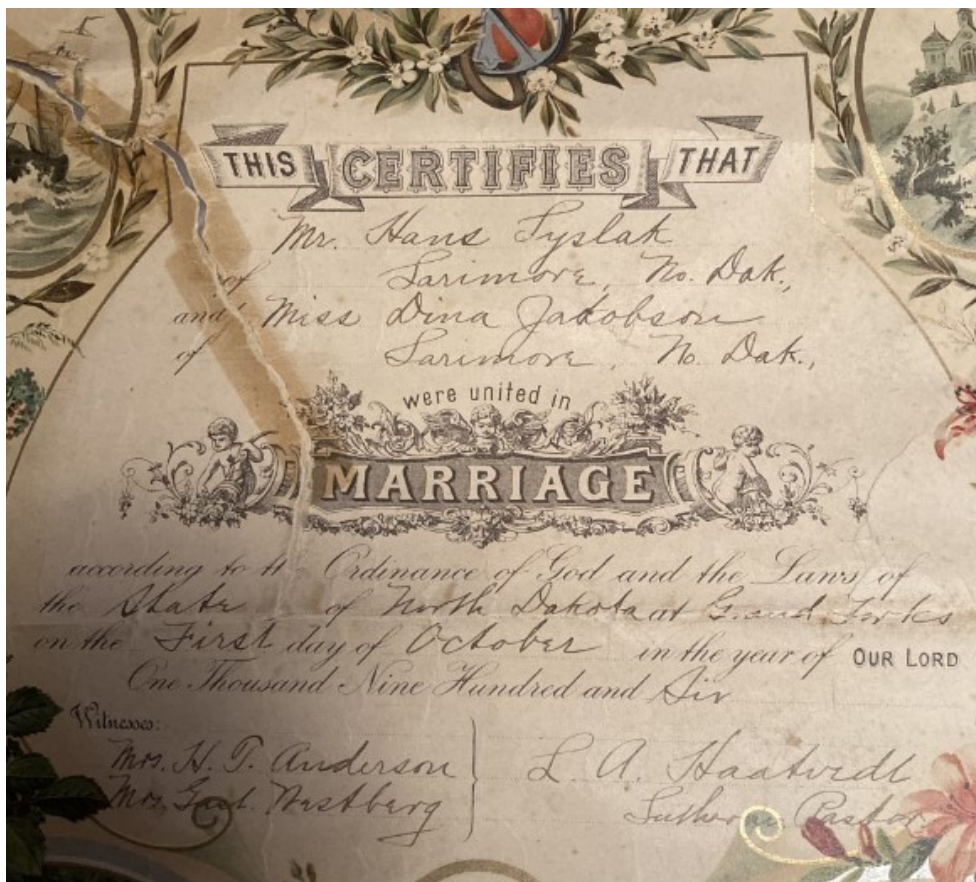 THIS CERTIFIES THAT
Mr. Hans Tyslak
of Larimore, No. Dak.,
and Miss Dina Jakobson
of Larimore, No. Dak.,
were united in
MARRIAGE
according to the Ordinance of God and the Laws of
the State of North Dakota at Grand Forks
on the First day of October in the year of OUR LORD
One Thousand Nine Hundred and Six
Witnesses:
Mrs. H. T. Anderson
Mrs. Gust. Westberg
L. A. Haatvedt
Lutheran Pastor